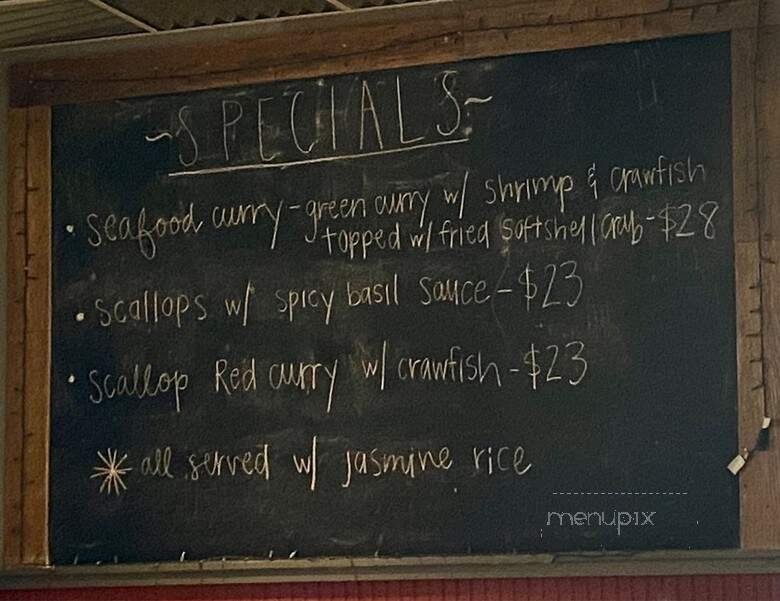 ~SPECIALS~
• seafood curry - green curry w/ shrimp & crawfish
topped w/ fried softshell crab - $28
• scallops w/ spicy basil sauce - $23
• scallop Red curry w/ crawfish - $23
* all served w/ jasmine rice
menupix